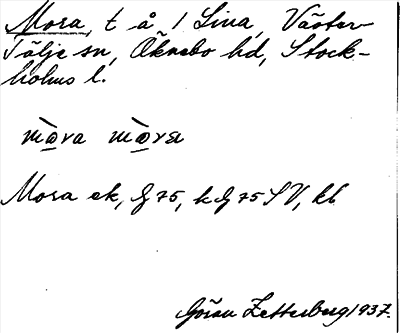 Mora, t å / Lina, Väster-
Tälje sn, Öknebo hd, Stock-
holms l.
mòra mòra
Mora ek, G 75, k G 75 SV, kb
Göran Zetterberg 1937.